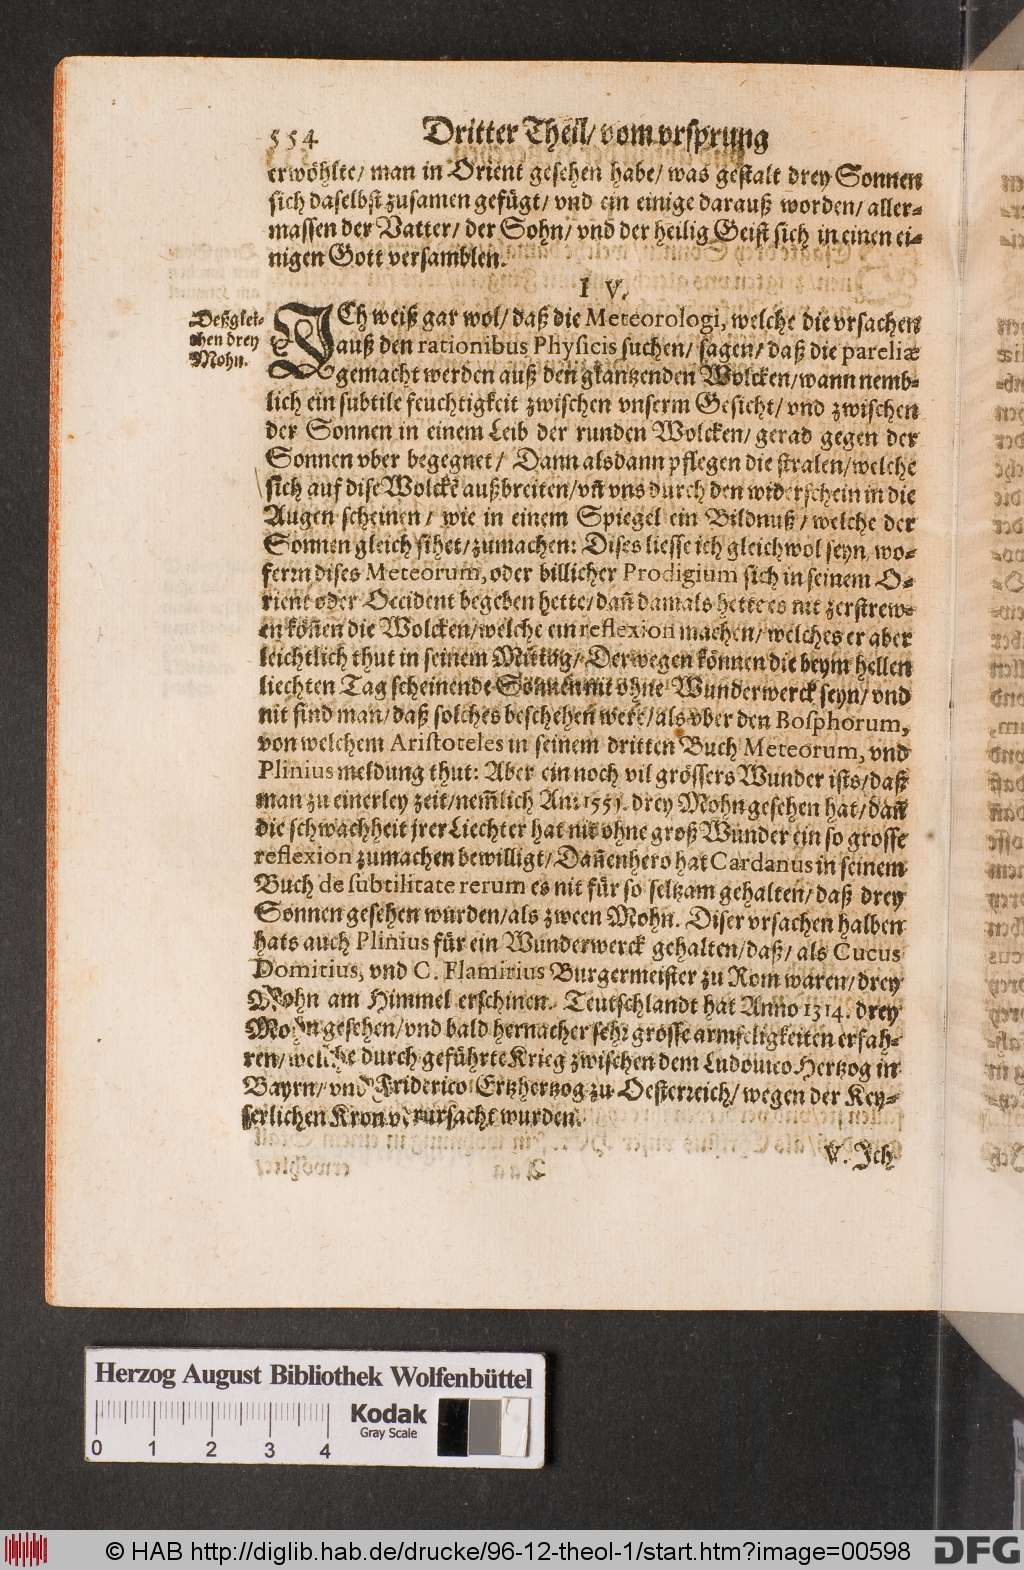 554 Dritter Theil/ vom vrsprung
erwöhlte/ man in Orient gesehen habe/ was gestalt drey Sonnen
sich daselbst zusamen gefügt/ vnd ein einige darauß worden/ aller-
massen der Vatter/ der Sohn/ vnd der heilig Geist sich in einen ei-
nigen Gott versamblen.
I V.
Deßglei-
chen drey
Mohn.
ICh weiß gar wol/ daß die Meteorologi, welche die vrsachen
auß den rationibus Physicis suchen/ sagen/ daß die pareliæ
gemacht werden auß den glantzenden Wolcken/ wann nemb-
lich ein subtile feuchtigkeit zwischen vnserm Gesicht/ vnd zwischen
der Sonnen in einem Leib der runden Wolcken/ gerad gegen der
Sonnen vber begegnet/ Dann alsdann pflegen die stralen/ welche
sich auf dise Wolckē außbreiten/ vn̄ vns durch den widerschein in die
Augen scheinen/ wie in einem Spiegel ein Bildnuß/ welche der
Sonnen gleich sihet/ zumachen: Dises liesse ich gleichwol seyn, wo-
ferrn dises Meteorum, oder billicher Prodigium sich in seinem O-
rient oder Occident begeben hette/ dan̄ damals hette es nit zerstrew-
en kön̄en die Wolcken/ welche ein reflexion machen/ welches er aber
leichtlich thut in seinem Mittag/ Derwegen können die beym hellen
liechten Tag scheinende Sonnen nit ohne Wunderwerck seyn/ vnd
nit find man/ daß solches beschehen were/ als vber den Bosphorum,
von welchem Aristoteles in seinem dritten Buch Meteorum, vnd
Plinius meldung thut: Aber ein noch vil grössers Wunder ists/ daß
man zu einerley zeit/ nem̄lich An: 1551. drey Mohn gesehen hat/ dan̄
die schwachheit jrer Liechter hat nit ohne groß Wunder ein so grosse
reflexion zumachen bewilligt/ Dan̄enhero hat Cardanus in seinem
Buch de subtilitate rerum es nit für so seltzam gehalten/ daß drey
Sonnen gesehen wurden/ als zween Mohn. Diser vrsachen halben
hats auch Plinius für ein Wunderwerck gehalten/ daß/ als Cucus
Domitius, vnd C. Flamirius Burgermeister zu Rom waren/ drey
Mohn am Himmel erschinen. Teutschlandt hat Anno 1314. drey
Mohn gesehen/ vnd bald hernacher sehr grosse armseligkeiten erfah-
ren/ welche durch geführte Krieg zwischen dem Ludouico Hertzog in
Bayrn/ vnd Friderico Ertzhertzog zu Oesterreich/ wegen der Key-
serlichen Kron verursacht wurden.
V. Ich
Herzog August Bibliothek Wolfenbüttel
0 1 2 3 4
Kodak
Gray Scale
© HAB http://diglib.hab.de/drucke/96-12-theol-1/start.htm?image=00598
DFG